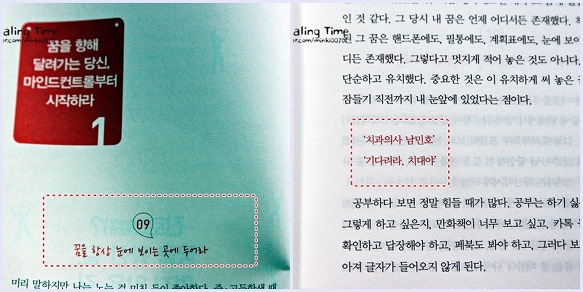 aling Time
꿈을 향해
달려가는 당신,
마인드컨트롤부터
시작하라
1
09
꿈을 항상 눈에 보이는 곳에 두어라
미리 말하지만 나는 노는 걸 미친 듯이 좋아한다. 중·고등학생 때
aling Time
인 것 같다. 그 당시 내 꿈은 언제 어디서든 존재했다.
그 꿈은 핸드폰에도, 필통에도, 계획표에도, 눈에 보이
디든 존재했다. 그렇다고 멋지게 적어 놓은 것도 아니다.
단순하고 유치했다. 중요한 것은 이 유치하게 써 놓은
잠들기 직전까지 내 눈앞에 있었다는 점이다.
‘치과의사 남민호’
‘기다려라, 치대야’
공부하다 보면 정말 힘들 때가 많다. 공부는 하기 싫
그렇게 하고 싶은지, 만화책이 너무 보고 싶고, 카톡
확인하고 답장해야 하고, 페북도 봐야 하고, 그러다 보
아져 글자가 들어오지 않게 된다.